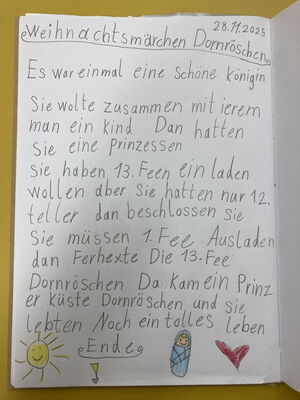 28.11.2025
Weihnachtsmärchen Dornröschen
Es war einmal eine Schöne Königin
Sie wolte zusammen mit ierem
man ein kind Dan hatten
Sie eine Prinzessen
Sie haben 13. Feen ein laden
wollen aber Sie hatten nur 12.
teller dan beschlossen sie
Sie müssen 1. Fee Ausladen
dan Ferhexte Die 13. Fee
Dornröschen Da kam ein Prinz
er küste Dornröschen und sie
lebten Noch ein tolles leben
Ende